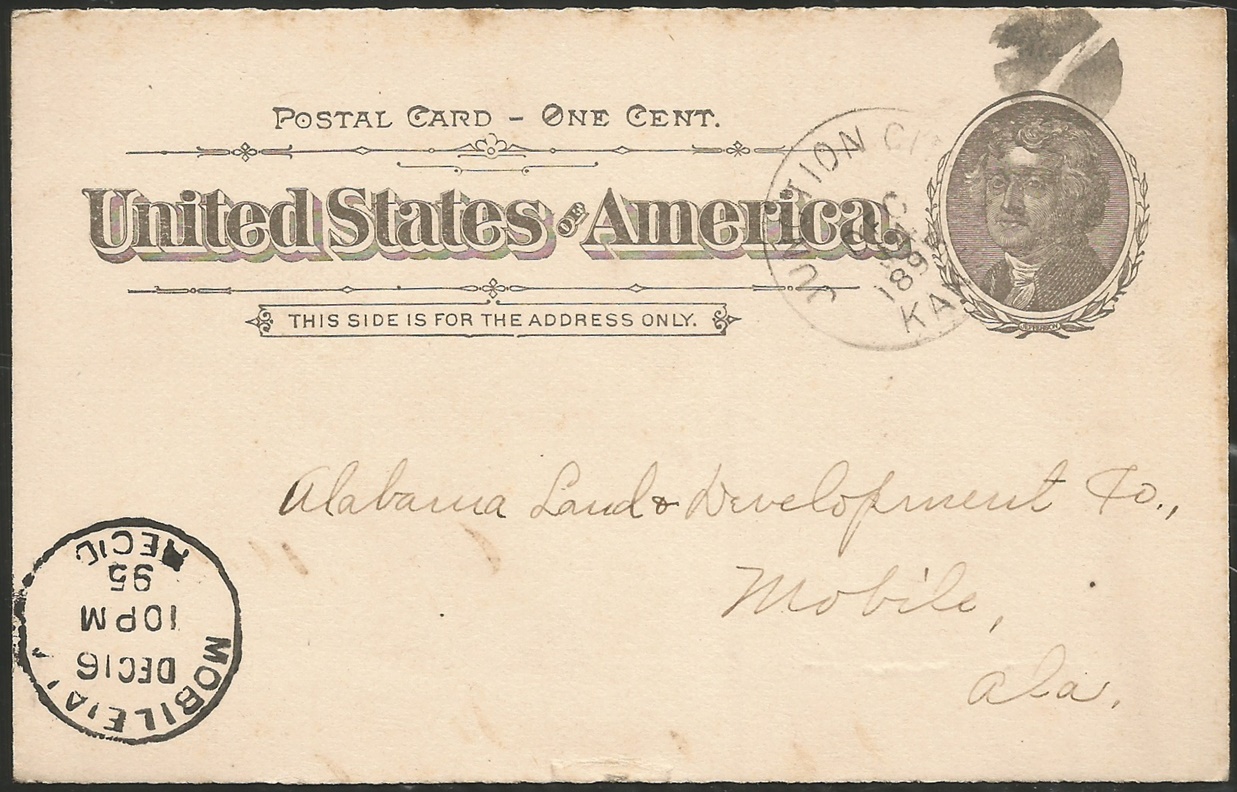 POSTAL CARD - ONE CENT.
United States OF America.
THIS SIDE IS FOR THE ADDRESS ONLY.
JUNCTION CI
DEC
189
KA
JEFFERSON
Alabama Land & Development Co.,
Mobile,
Ala.
MOBILE
DEC 16
10 PM
95
REC'D